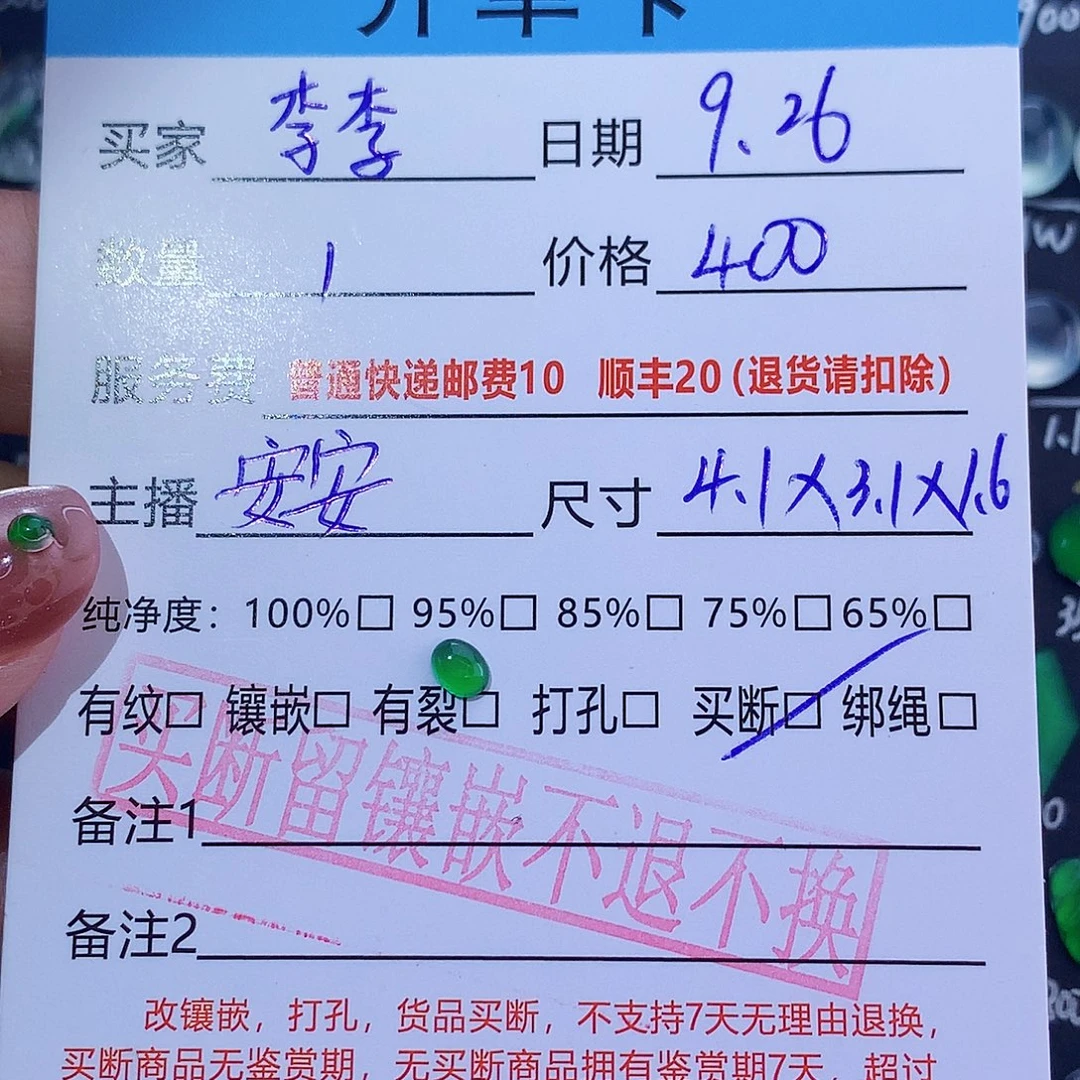 开单卡
买家 李李 日期 9.26
数量 1 价格 400
服务费 普通快递邮费10 顺丰20(退货请扣除)
主播 安安 尺寸 4.1X3.1X1.6
纯净度：100%□ 95%□ 85%□ 75%□ 65%□
有纹□ 镶嵌□ 有裂□ 打孔□ 买断□ 绑绳□
买断留镶嵌不退不换
备注1
备注2
改镶嵌，打孔，货品买断，不支持7天无理由退换，
买断商品无鉴赏期，无买断商品拥有鉴赏期7天，超过